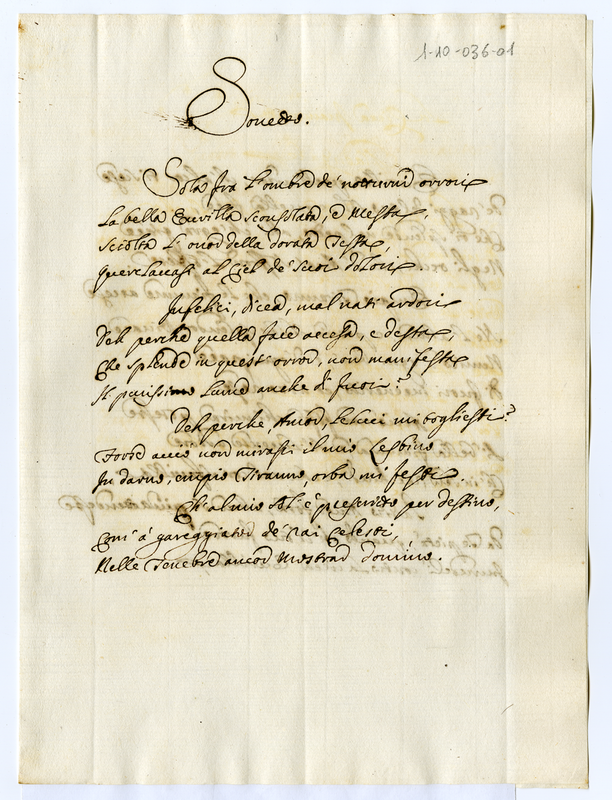 1-10-036-01
Sonetto.
Sola fra l'ombre de' notturni orrori
La bella Euvilla sconsolata, e Mesta,
sciolta l'onor della dorata Testa,
querelavasi al Ciel de' suoi dolori.
Infelici, dicea, mal nati ardori
Deh perchè quella face accesa, e desta,
Che splende in questi orror, non manifesta
Il purissimo lume anche di fuori?
Deh perche, Amor, le luci mi togliesti?
Forse acciò non mirasti il mio Lesbino
In darno, empio Tiranno, orba mi festi.
Ch' al mio è prescritto per destino,
à gareggiator de' rai Celesti,
Nelle Tenebre ancor Mostrar domino.